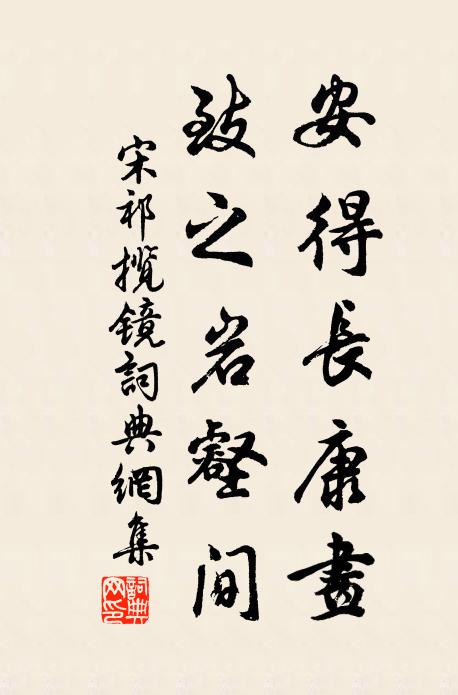 安得長康畫
致之岩壑間
宋祁攬鏡詞典網集
詞典網印